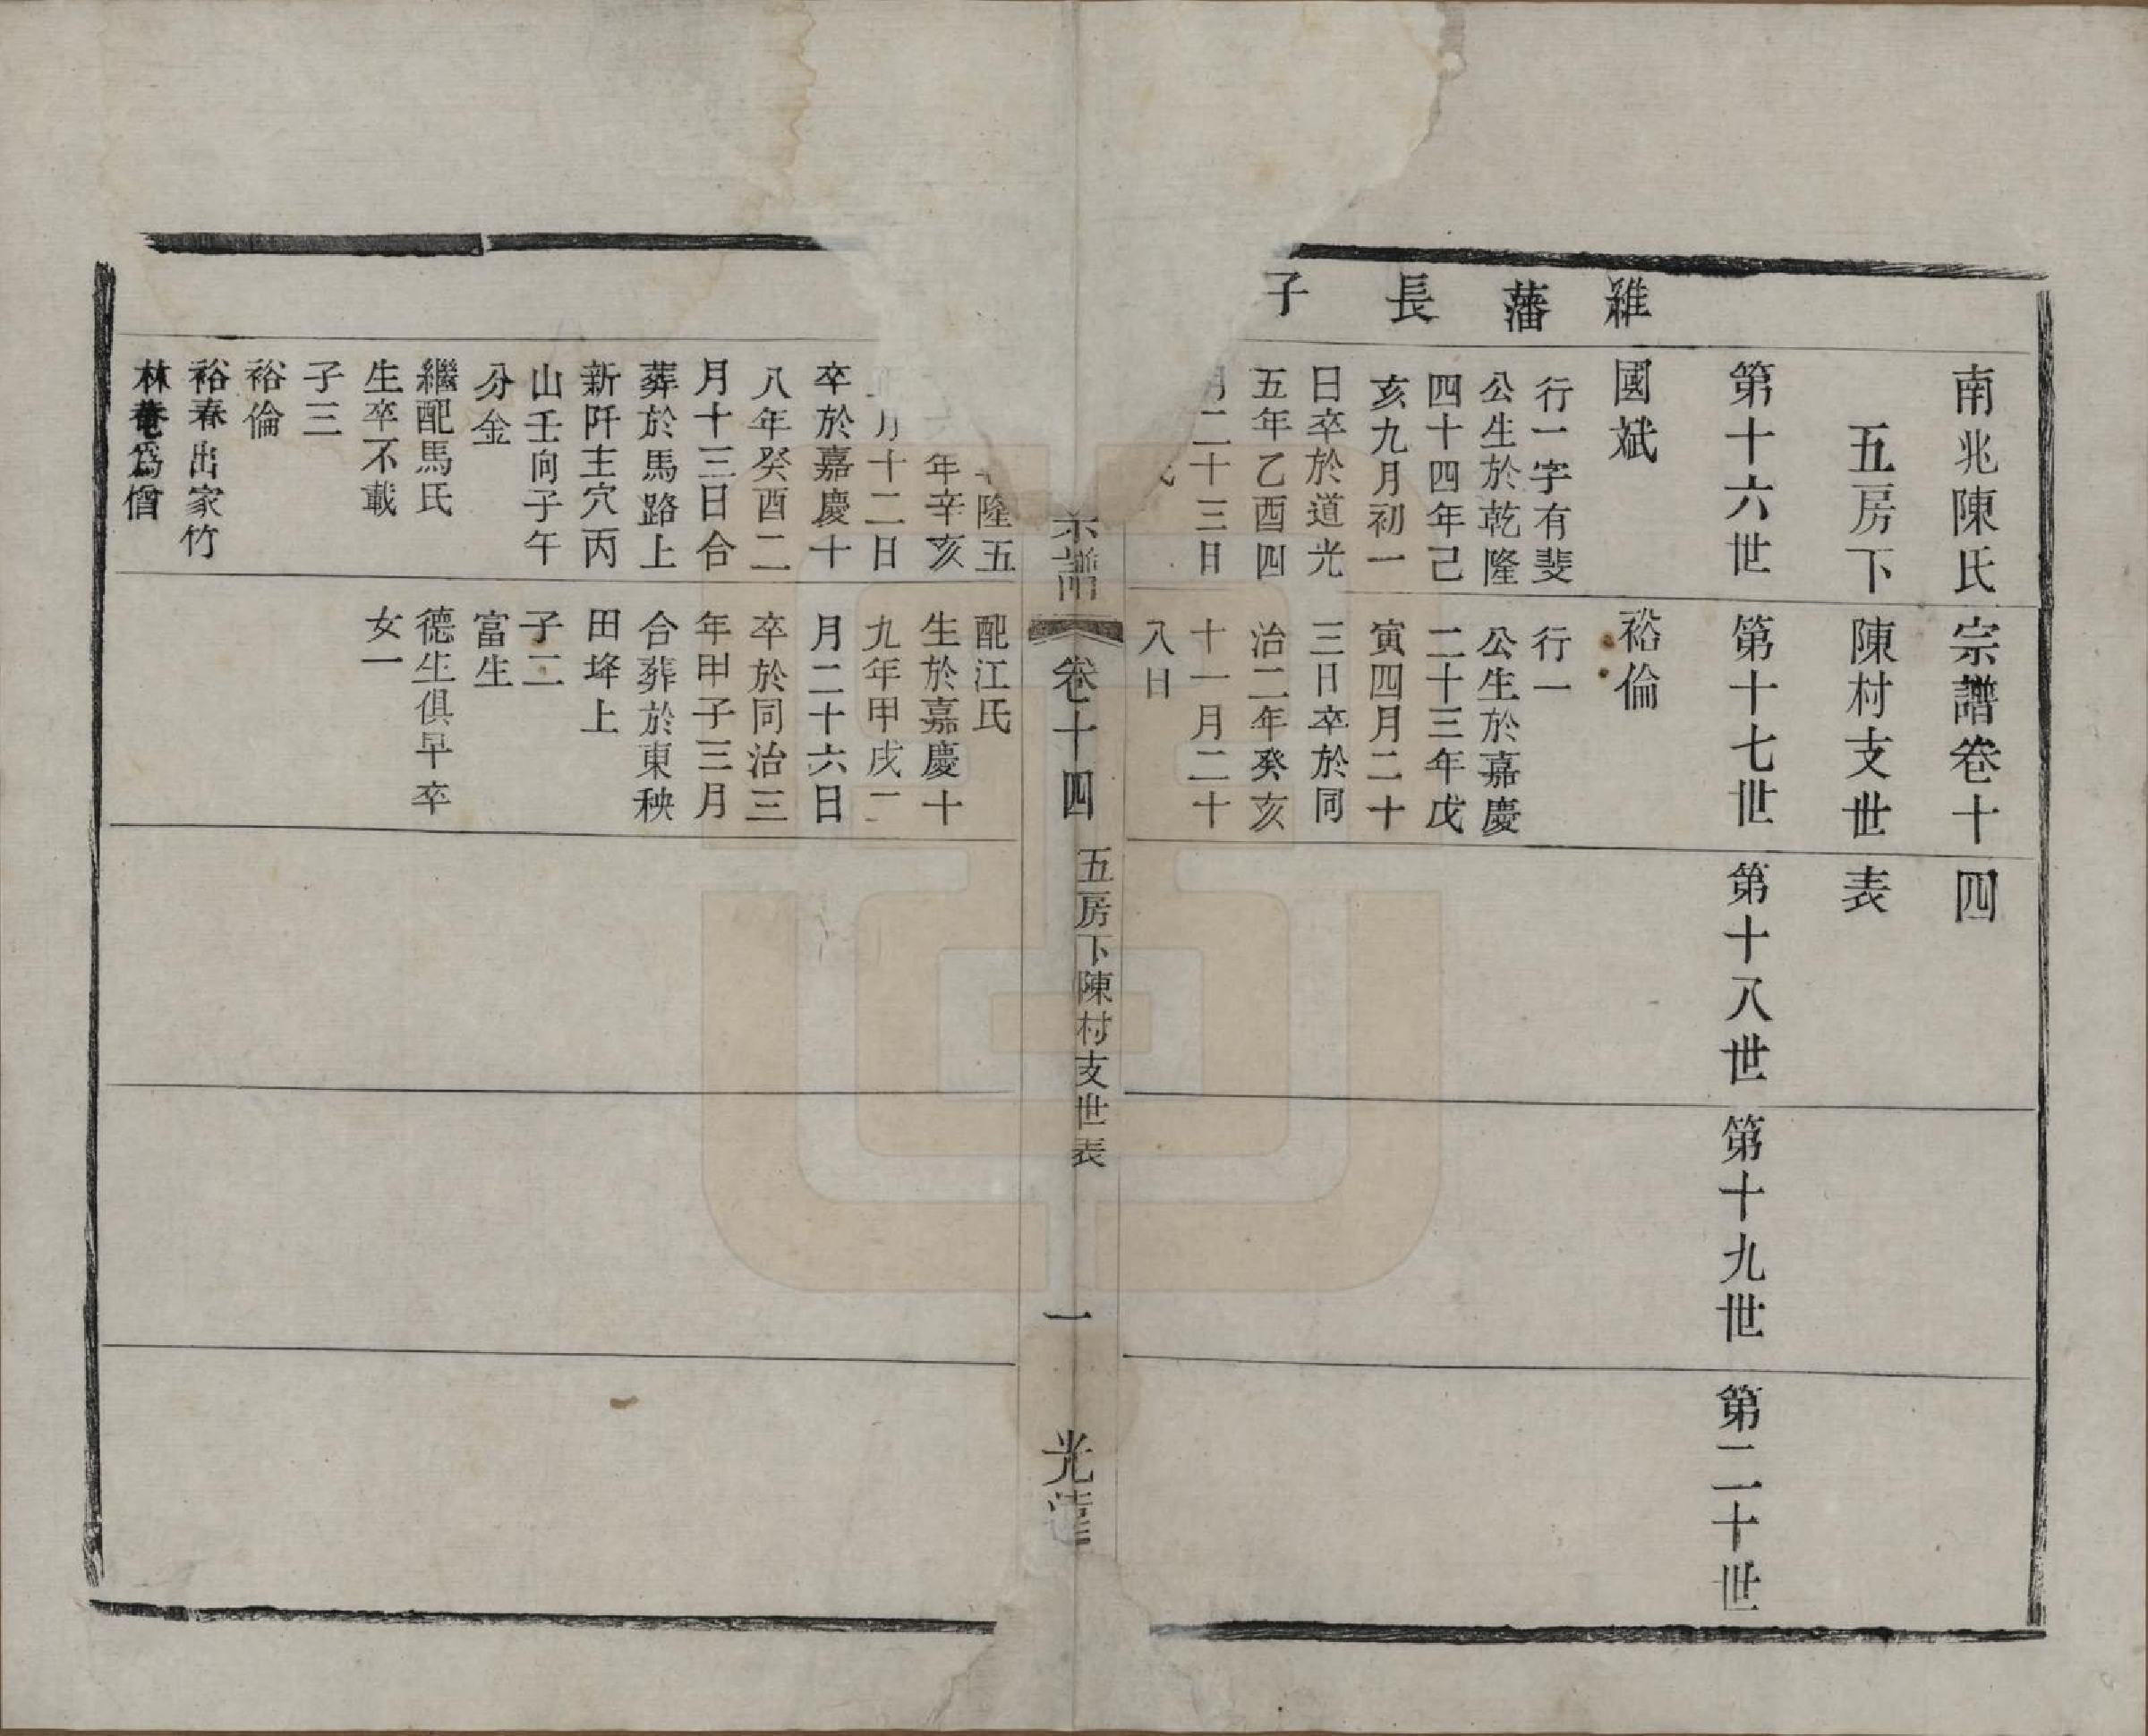 南兆陳氏宗譜卷十四
五房下陳村支世表
第十六世
第十七世
第十八世
第十九世
第二十世
雒藩長子
國斌
行一字有斐
公生於乾隆
四十四年己
亥九月初一
日卒於道光
五年乙酉四
月二十三日
裕倫
行一
公生於嘉慶
二十三年戊
寅四月二十
三日卒於同
治二年癸亥
十一月二十
八日
宗譜
卷十四
五房下陳村支世表
一
光
隆五
年辛亥
月十二日
卒於嘉慶十
八年癸酉二
月十三日合
葬於馬路上
新阡主穴丙
山壬向子午
分金
繼配馬氏
生卒不載
子三
裕倫
裕春出家竹
林菴為僧
配江氏
生於嘉慶十
九年甲戌二
月二十六日
卒於同治三
年甲子三月
合葬於東秧
田埄上
子二
富生
德生俱早卒
女一